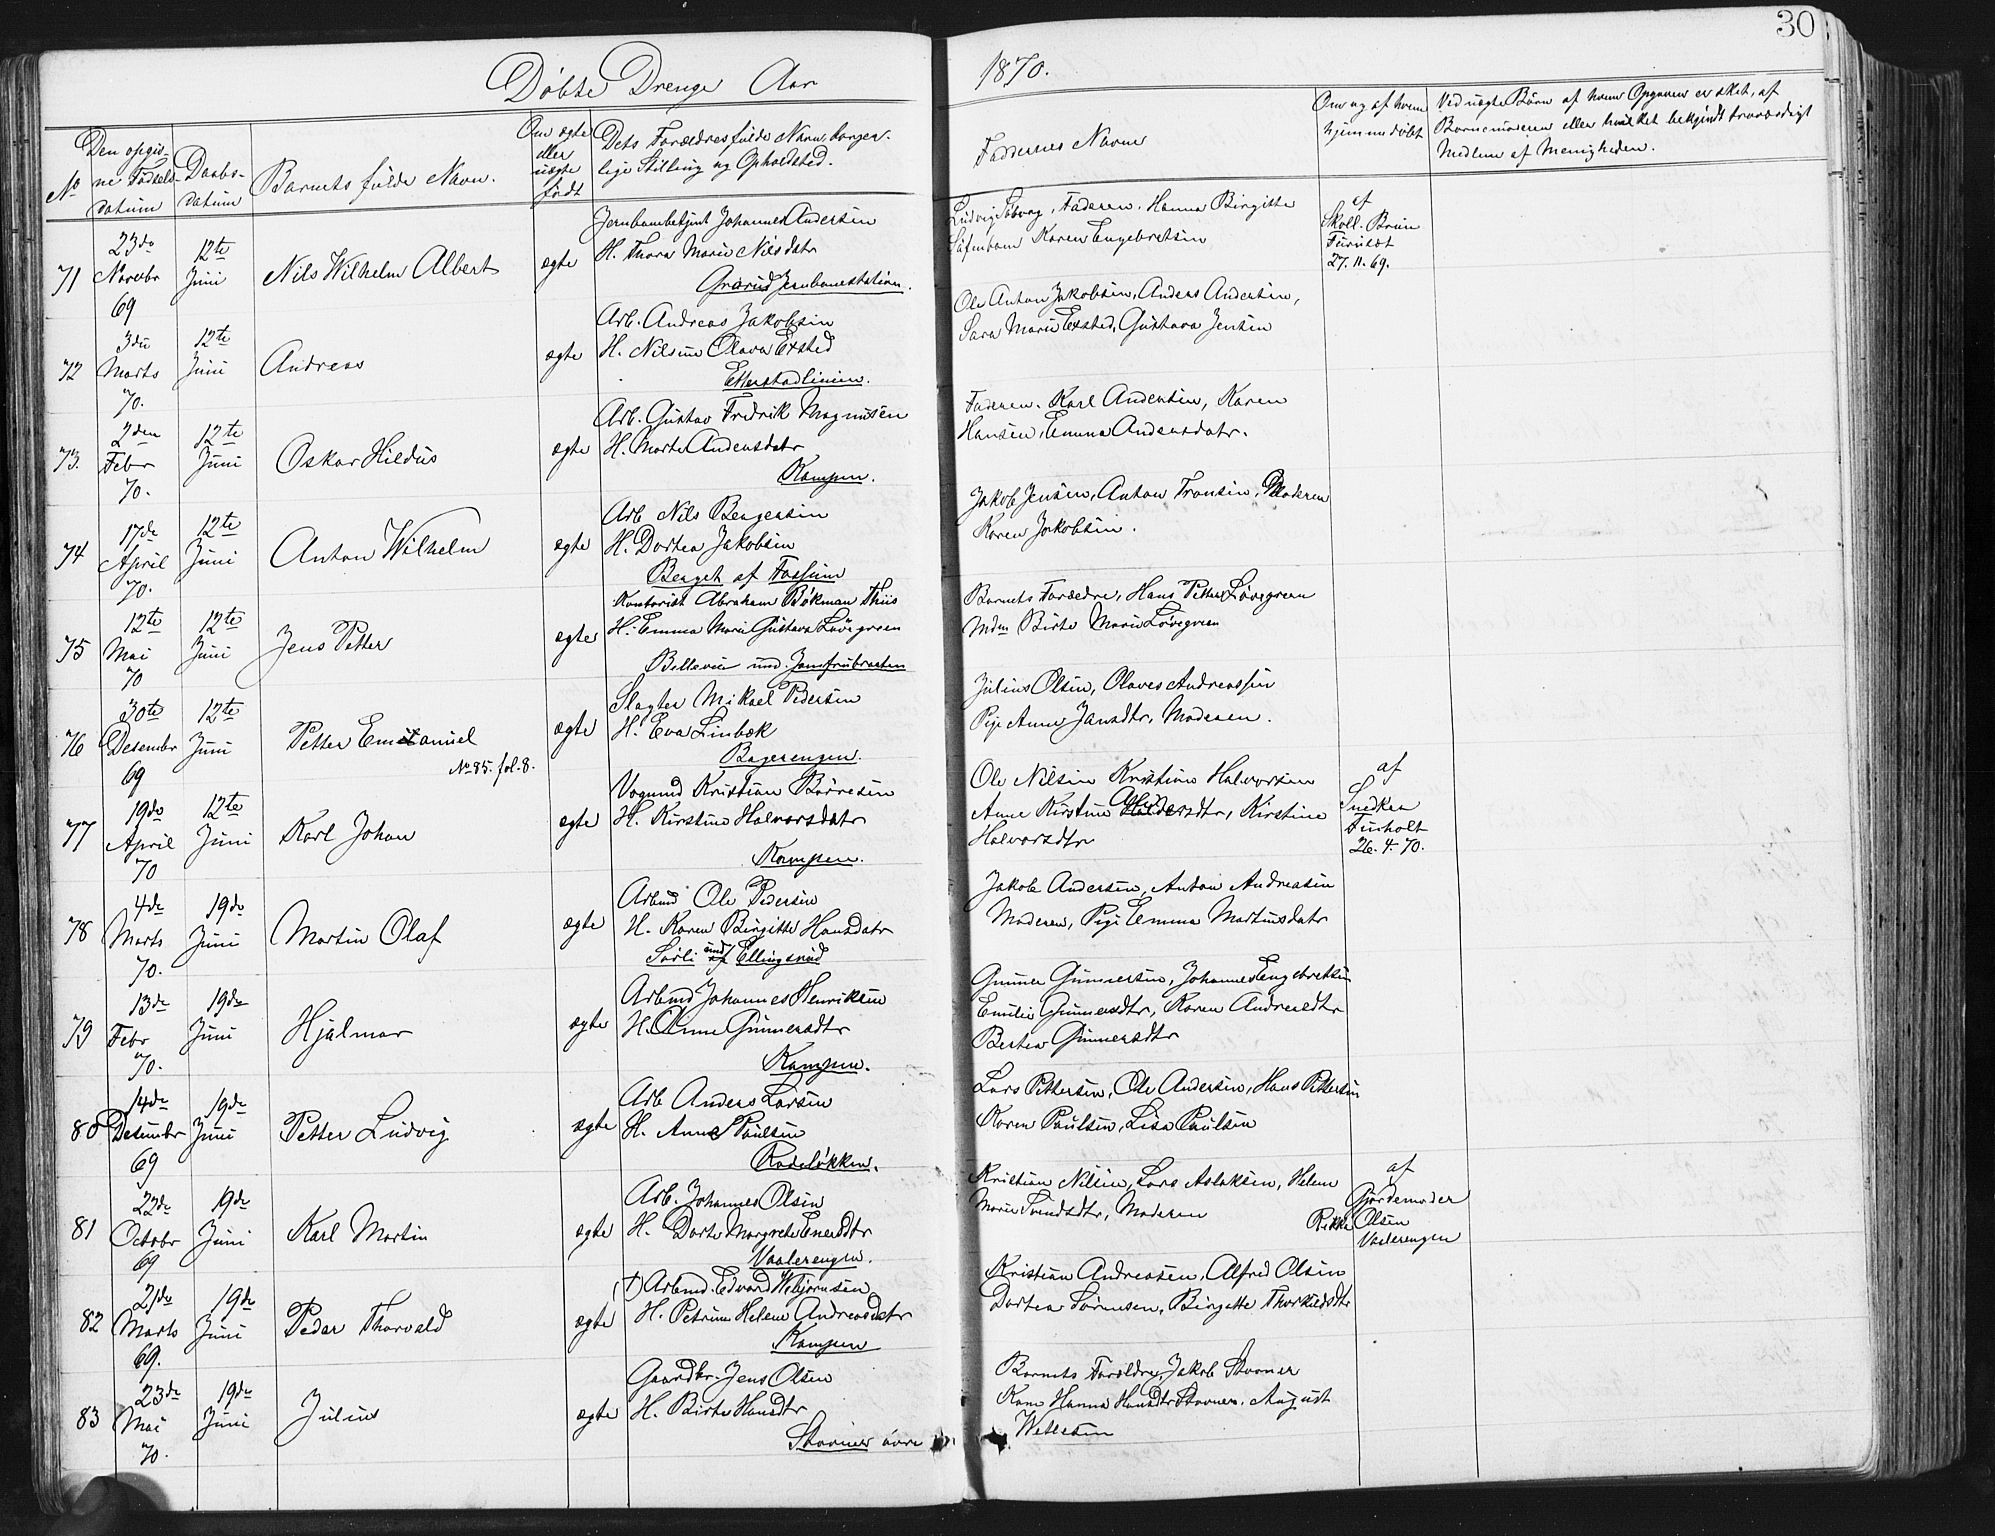 30
Döbte Drenge Aar 1870.
No
Den opgiv-
ne Fødsels-
datum
Daabs-
datum
Barnets fulde Navn.
Om ægte
eller
uægte
født
Dets Forældres fulde Navn, borger-
lige Stilling og Opholdsted.
Faddernes Navne
Om og af hvem
hjemmedøbt
Ved uægte Børn af hvem Opgaven er sket, af
Barnemoderen eller hvilket bekjendt troværdigt
Medlem af Menigheden.
71
23de
Novbr
69
12te
Juni
Nils Wilhelm Albert
ægte
Jernbanebetjent Johannes Andersen
H. Thora Marie Nilsdatr
Grorud Jernbanestation.
Ludvig Søberg, Faderen, Hanna Birgitte
Karen Engebretsen
af
Skoll. Bruun
Furuset
27.11.69.
72
3die
Marts
70.
12te
Juni
Andreas
ægte
Arb. Andreas Jakobsen
H. Nilsine Olava Exsted
Etterstadlinien.
Ole Anton Jakobsen, Anders Andersen,
Sara Marie Exsted, Gustava Jensen
73.
2den
Febr
70.
12te
Juni
Oskar Hildus
ægte
Arb. Gustav Fredrik Magnusen
H. Marte Andersdatr
Kampen.
Faderen. Karl Andersen, Karen
Hansen, Emma Andersdatr.
74
17de
April
70.
12te
Juni
Anton Wilhelm
ægte
Arb Nils Bengersen
H. Dortea Jakobsen
Berget af Fossum
Jakob Jensen, Anton Fransen, Moderen
Karen Jakobsen.
75
12te
Mai
70
12te
Juni
Jens Petter
ægte
Kontorist Abraham Bökman Thiis
H. Emma Marie Gustava Lövegreen
Bellevue und. Jomfrubraaten
Barnets Forældre, Hans Petter Lövegreen
Mdm Birte Marie Lövegreen
76
30te
Desembr
69
12te
Juni
Petter Emanuel
No 85. fol. 8.
ægte
Slagter Mikael Pedersen
H. Eva Linbæk
Bagerengen.
Julius Olsen, Olaves Andreassen
Pige Anne Jansdtr, Moderen.
77
19de
April
70
12te
Juni
Karl Johan
ægte
Vognmd Kristian Börresen
H. Kirstine Halvorsdatr
Kampen.
Ole Nilsen Kristine Halvorsen
Anne Kirstine Olsdtr, Kirstine
Halvorsdtr
af
Snedker
Furholt
26.4.70.
78
4de
Marts
70.
19de
Juni
Martin Olaf
ægte
Arbmd Ole Pedersen
H. Karen Birgitte Hansdatr
Sörli und Ellingsrud
Jakob Andersen, Anton Andreasen
Moderen, Pige Emma Martinsdatr
79
13de
Febr
70.
19de
Juni
Hjalmar
ægte
Arbmd Johannes Henriksen
H. Anne Gunnersdtr
Kampen.
Gunner Gunnersen, Johannes Engebretsen
Emilie Gunnersdtr, Karen Andersdtr
Bertea Gunnersdtr
80
14de
Desembr
69
19de
Juni
Petter Ludvig
ægte
Arb Anders Larsen
H. Anne Paulsen
Rodeløkken.
Lars Pettersen, Ole Andersen, Hans Pettersen
Karen Paulsen, Lisa Paulsen
81
22de
Octobr
69
19de
Juni
Karl Martin
ægte
Arb. Johannes Olsen
H. Dorte Margrete Enersdtr
Vaalerengen.
Kristian Nilsen, Lars Aslaksen, Helene
Marie Svendsdtr, Moderen
af
Gjordemoder
Rikke Olsen
Vaalerengen
82
21de
Marts
69.
19de
Juni
Peder Thorvald
ægte
(†) Arbmd. Edvard Webjørnsen
H. Petrine Helene Andreasdatr
Kampen
Kristian Andreasen, Alfred Olsen
Dortea Sørensen, Birgette Thorkildsdtr
83
23de
Mai
70.
19de
Juni
Julius
ægte
Gaardbr. Jens Olsen
H. Birte Hansdtr
Stovner øvre
Barnets Forældre, Jakob Stovner
Kone Hanna Hansdtr Stovner, August
Wettesen